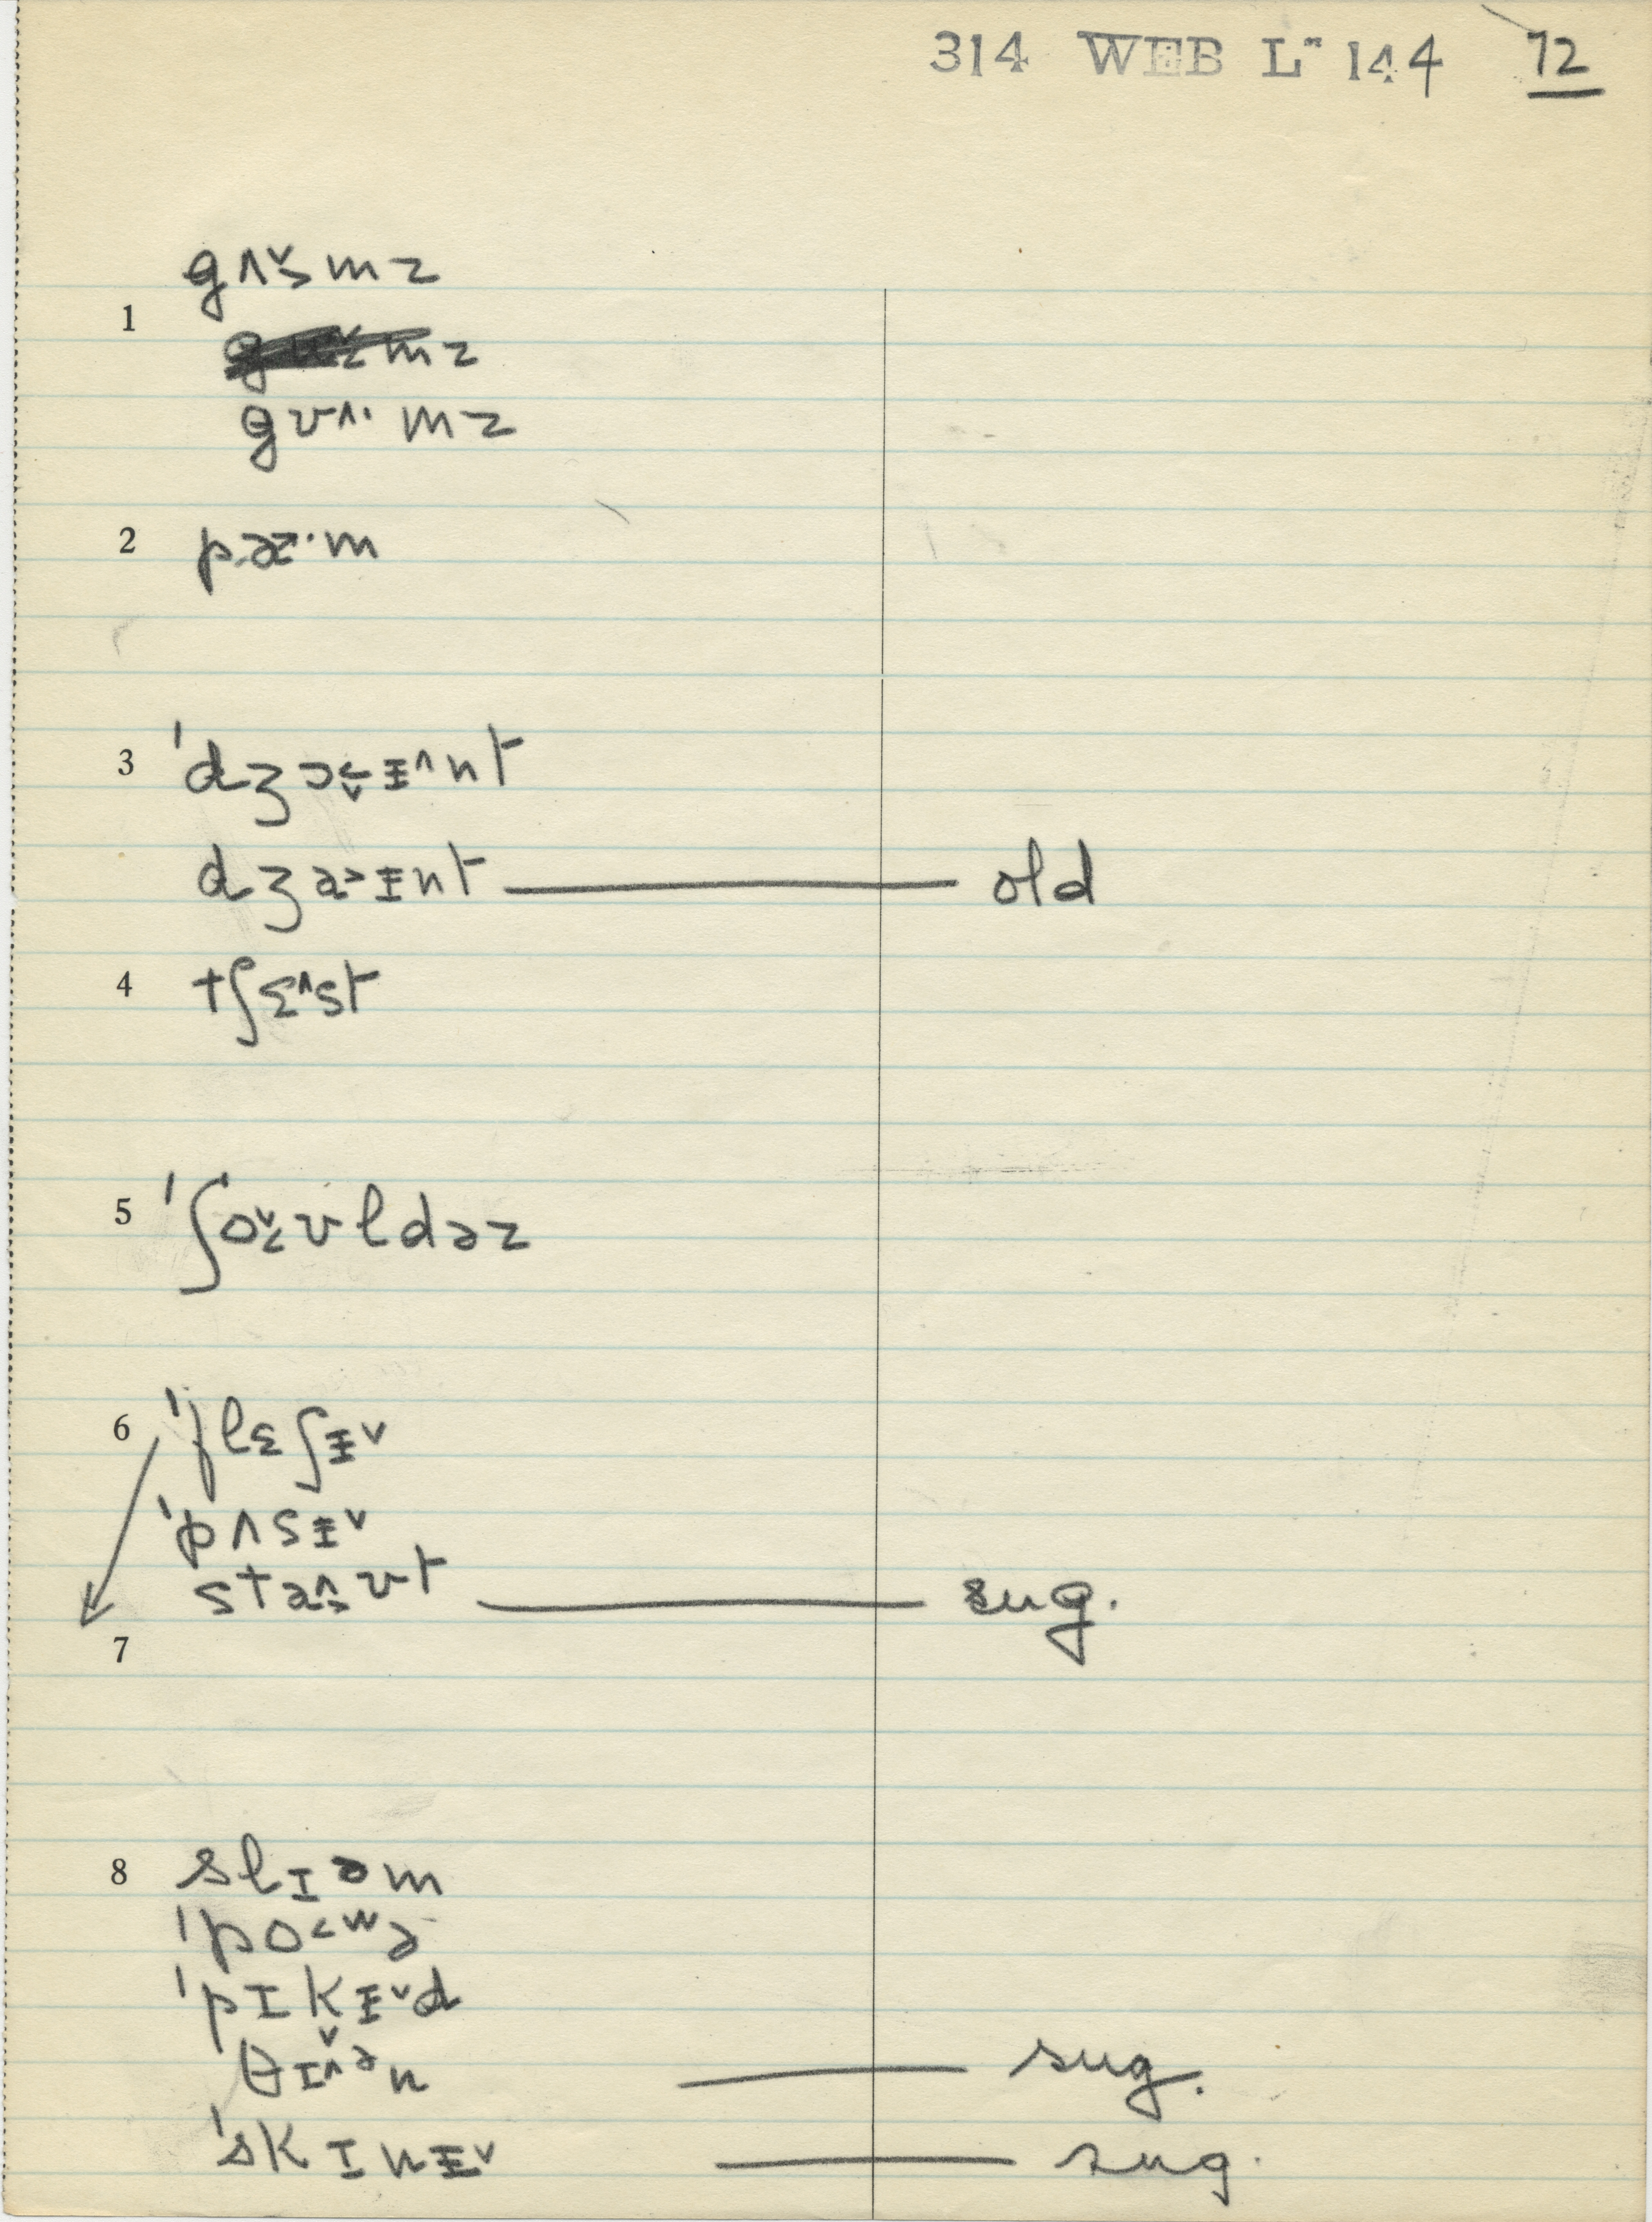 314 WEB L" 144 72
gʌ˅˃mz
1
mz
gʊʌ·mz
2 pæ·m
3 ˈdʒɔ˂˅ɪ̵˄nt
dʒa˃ɪ̵nt — old
4 tʃɛ˄st
5 ˈʃo˅˂ʊldəz
6 ˈflɛʃɪ̵˅
ˈpʌsɪ̵˅
sta˄˃ʊt — sug.
7
8 slɪəm
ˈpo˂wə
ˈpɪkɪ̵˅d
θɪ˅˄ən — sug.
ˈskɪnɪ̵˅ — sug.